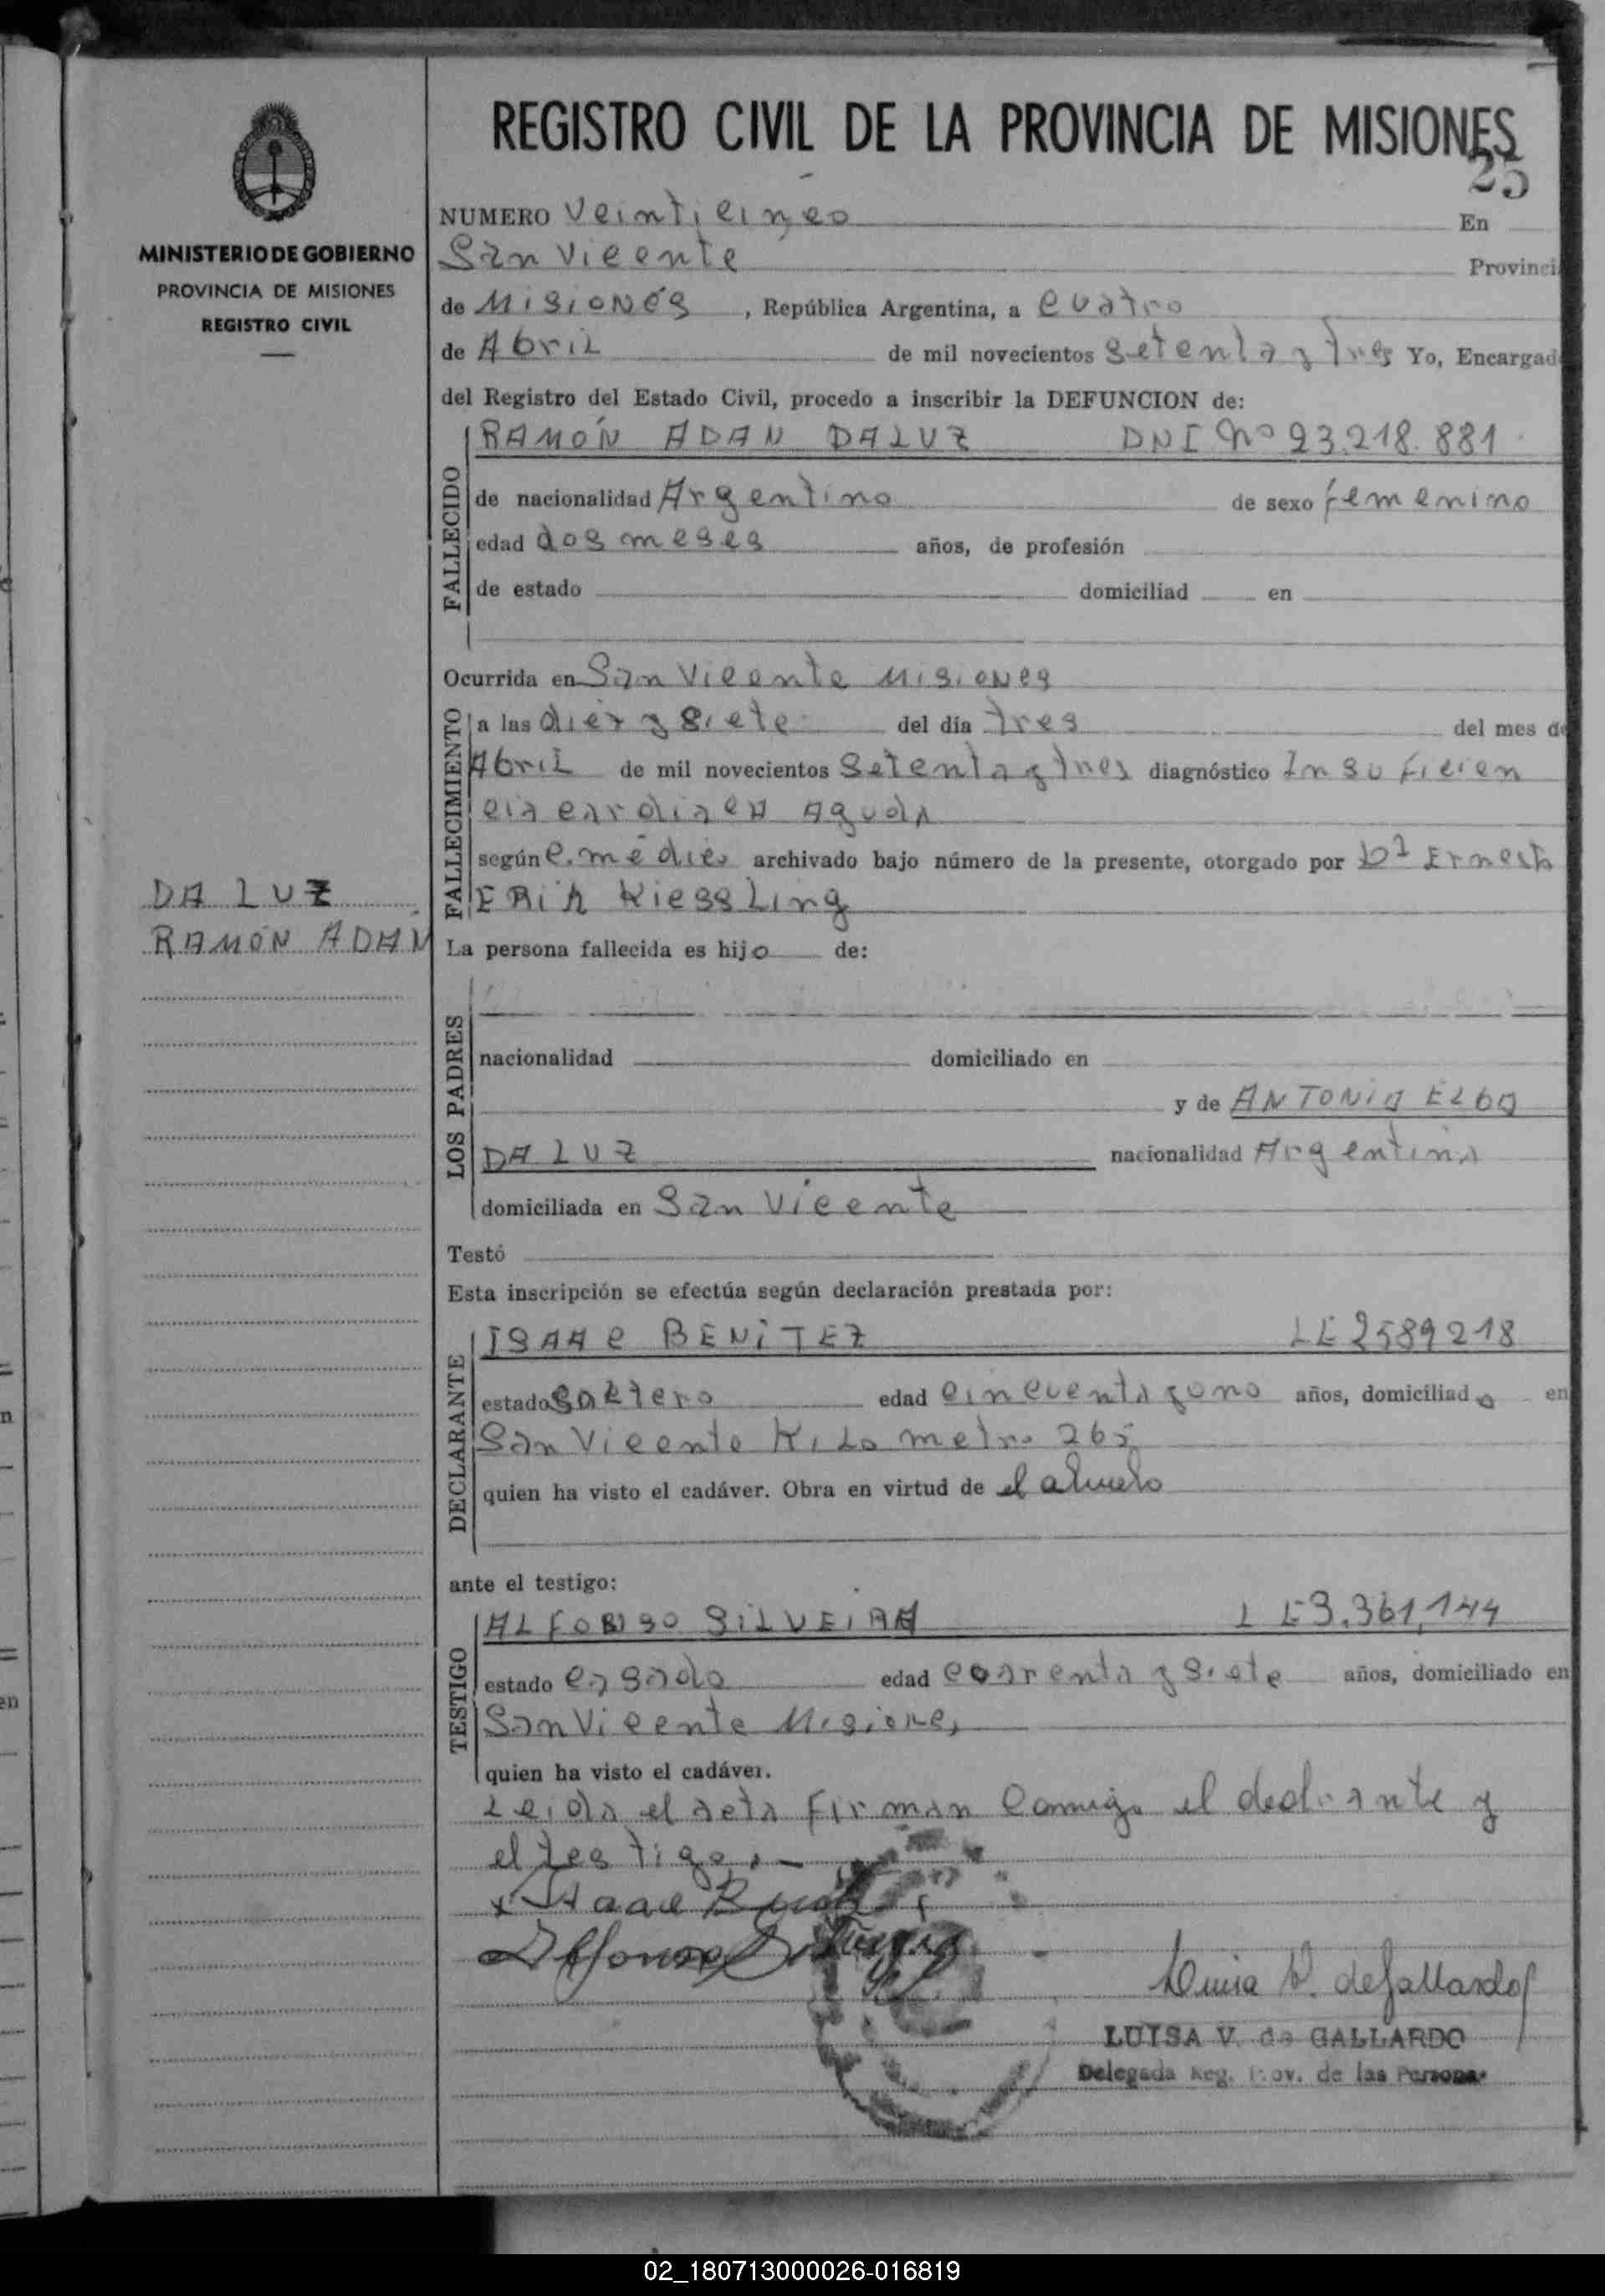 REGISTRO CIVIL DE LA PROVINCIA DE MISIONES
25
MINISTERIO DE GOBIERNO
PROVINCIA DE MISIONES
REGISTRO CIVIL
NUMERO Veinticinco En
San Vicente Provinci
de Misiones , República Argentina, a cuatro
de Abril de mil novecientos setenta y tres Yo, Encargad
del Registro del Estado Civil, procedo a inscribir la DEFUNCION de:
RAMÓN ADAN DALUZ DNI Nº 23.218.881
FALLECIDO
de nacionalidad Argentino de sexo femenino
edad dos meses años, de profesión
de estado domiciliad en
Ocurrida en San Vicente Misiones
FALLECIMIENTO
a las diez y siete del día tres del mes de
Abril de mil novecientos setenta y tres diagnóstico Insuficien
cia cardiaca Aguda
según c. médico archivado bajo número de la presente, otorgado por Dr Ernesto
ERiK Kiessling
DA LUZ
RAMÓN ADAN
La persona fallecida es hijo de:
LOS PADRES
nacionalidad domiciliado en
y de ANTONIA ELBA
DA LUZ nacionalidad Argentina
domiciliada en San Vicente
Testó
Esta inscripción se efectúa según declaración prestada por:
DECLARANTE
ISAAC BENÍTEZ LE 2589218
estado soltero edad cincuenta y uno años, domiciliado en
San Vicente Kilometro 265
quien ha visto el cadáver. Obra en virtud de el abuelo
ante el testigo:
TESTIGO
ALFONSO SILVEIRA L E3.361,144
estado casado edad coarenta y siete años, domiciliado en
San Vicente Misiones
quien ha visto el cadáver.
Leida el acta firman comigo el declarante y
el testigo.-
x Isaac Benitez
Alfonso Silveira
Luisa V. de Gallardo
LUISA V. de GALLARDO
Delegada Reg. Prov. de las Personas
02_180713000026-016819